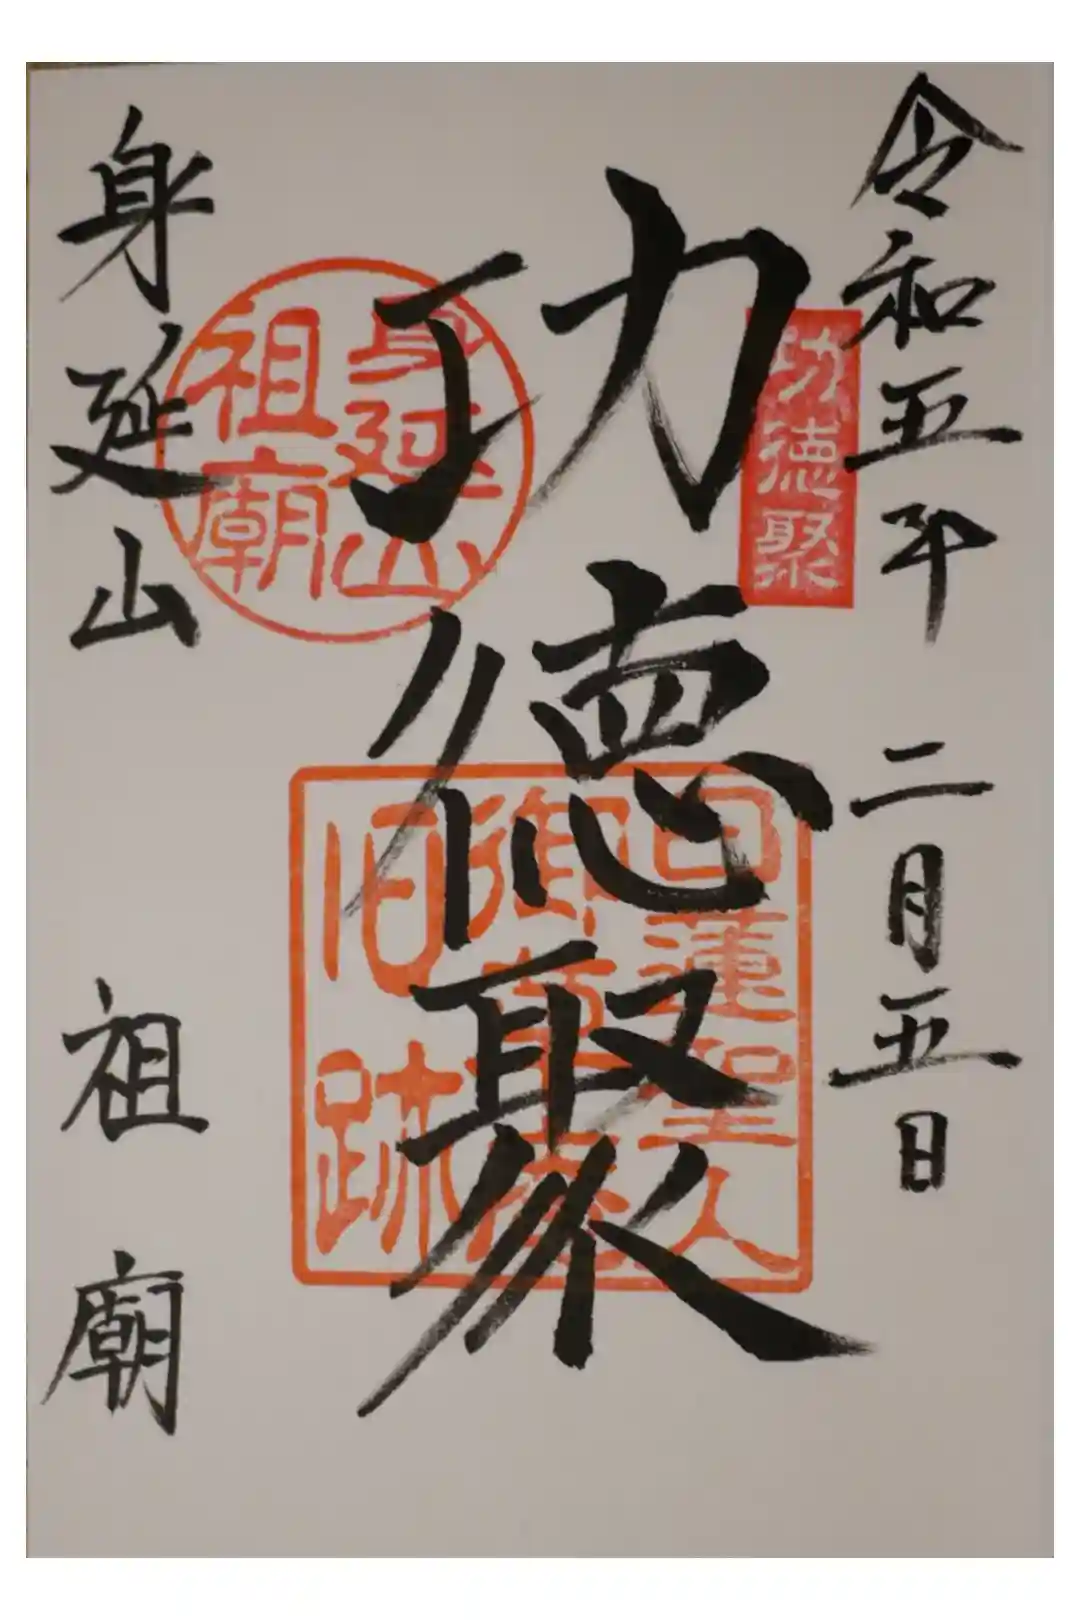 令和五年 二月五日
功徳聚
功徳聚
身延山
祖廟
日蓮聖人
御草庵
旧跡
身延山 祖廟